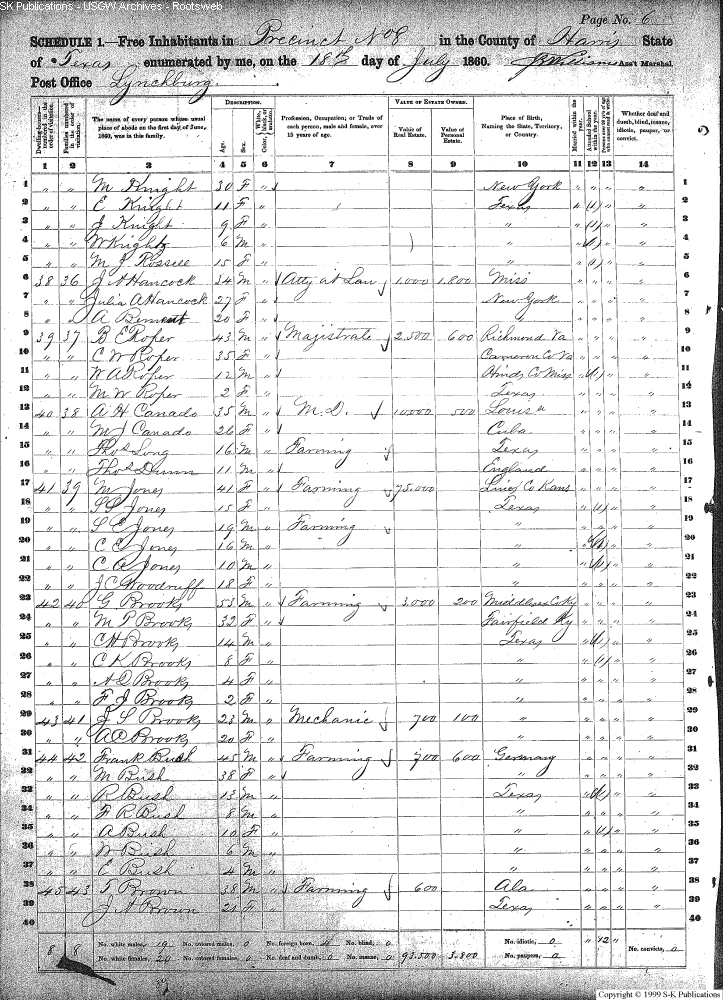 SK Publications - USGW Archives - Rootsweb
Page No. 6
SCHEDULE 1.—Free Inhabitants in Precinct No 8 in the County of Harris State
of Texas enumerated by me, on the 18th day of July 1860. Ass't Marshal
Post Office Lynchburg.
DESCRIPTION. VALUE OF ESTATE OWNED.
Dwelling-houses—numbered in the order of visitation. Families numbered in the order of visitation. The name of every person whose usual place of abode on the first day of June, 1860, was in this family. Age. Sex. Color, White, black, or mulatto. Profession, Occupation, or Trade of each person, male and female, over 15 years of age. Value of Real Estate. Value of Personal Estate. Place of Birth, Naming the State, Territory, or Country. Married within the year. Attended School within the year. Whether deaf and dumb, blind, insane, idiotic, pauper, or convict.
1 2 3 4 5 6 7 8 9 10 11 12 13 14
1 " " M Knight 30 F " New York " " " " 1
2 " " E Knight 11 F " Texas " (1) " " 2
3 " " J Knight 9 F " " " (1) " " 3
4 " " W Knight 6 M " " " (1) " " 4
5 " " M J 15 F " " " (1) " " 5
6 38 36 J A Hancock 34 M " Atty at Law 1,000 1,800 Miss " " " " 6
7 " " Julia A Hancock 27 F " New York " " " " 7
8 " " A Bennett 20 F " " " " " " 8
9 39 37 B E Roper 43 M " Majistrate 2,500 600 Richmond Va " " " " 9
10 " " C W Roper 35 F " Cameron Co Va " " " " 10
11 " " W A Roper 12 M " Hinds Co Miss " (1) " " 11
12 " " M W Roper 2 F " Texas " " " " 12
13 40 38 A H Canado 35 M " M.D. 10000 500 Louis a " " " " 13
14 " " M J Canado 26 F " Cuba " " " " 14
15 " " Thos Long 16 M " Farming Texas " " " " 15
16 " " Thos Dunn 11 M " England " " " " 16
17 41 39 M Jones 41 F " Farming 75,000 Co Kans " " " " 17
18 " " S S Jones 15 F " Texas " (1) " " 18
19 " " S E Jones 19 M " Farming " " " " " 19
20 " " C E Jones 16 M " " " (1) " " 20
21 " " C A Jones 10 M " " " (1) " " 21
22 " " J C Woodruff 18 F " " " " " " 22
23 42 40 G Brooks 53 M " Farming 3,000 200 Middlesex Co Ky " " " " 23
24 " " M P Brooks 32 F " Fairfield Ky " " " " 24
25 " " C H Brooks 14 M " Texas " (1) " " 25
26 " " C K Brooks 8 F " " " (1) " " 26
27 " " A D Brooks 4 F " " " " " " 27
28 " " F J Brooks 2 F " " " " " " 28
29 43 41 J S Brooks 23 M " Mechanic 700 100 " " " " " 29
30 " " A C Brooks 20 F " " " " " " 30
31 44 42 Frank Bush 45 M " Farming 700 600 Germany " " " " 31
32 " " M Bush 38 F " " " " " " 32
33 " " R Bush 13 M " Texas " (1) " " 33
34 " " F R Bush 8 M " " " " " " 34
35 " " A Bush 10 F " " " (1) " " 35
36 " " N Bush 6 M " " " " " " 36
37 " " E Bush 4 M " " " " " " 37
38 45 43 T Brown 38 M " Farming 600 Ala " " " " 38
39 " " J A Brown 21 F " Texas " " " " 39
40 40
8 8 No. white males, 19 No. colored males, 0 No. foreign born, 4 No. blind, 0 No. idiotic, 0 " 12 " No. convicts, 0
No. white females, 20 No. colored females, 0 No. deaf and dumb, 0 No. insane, 0 93,500 3,800 No. paupers, 0
Copyright © 1999 S-K Publications